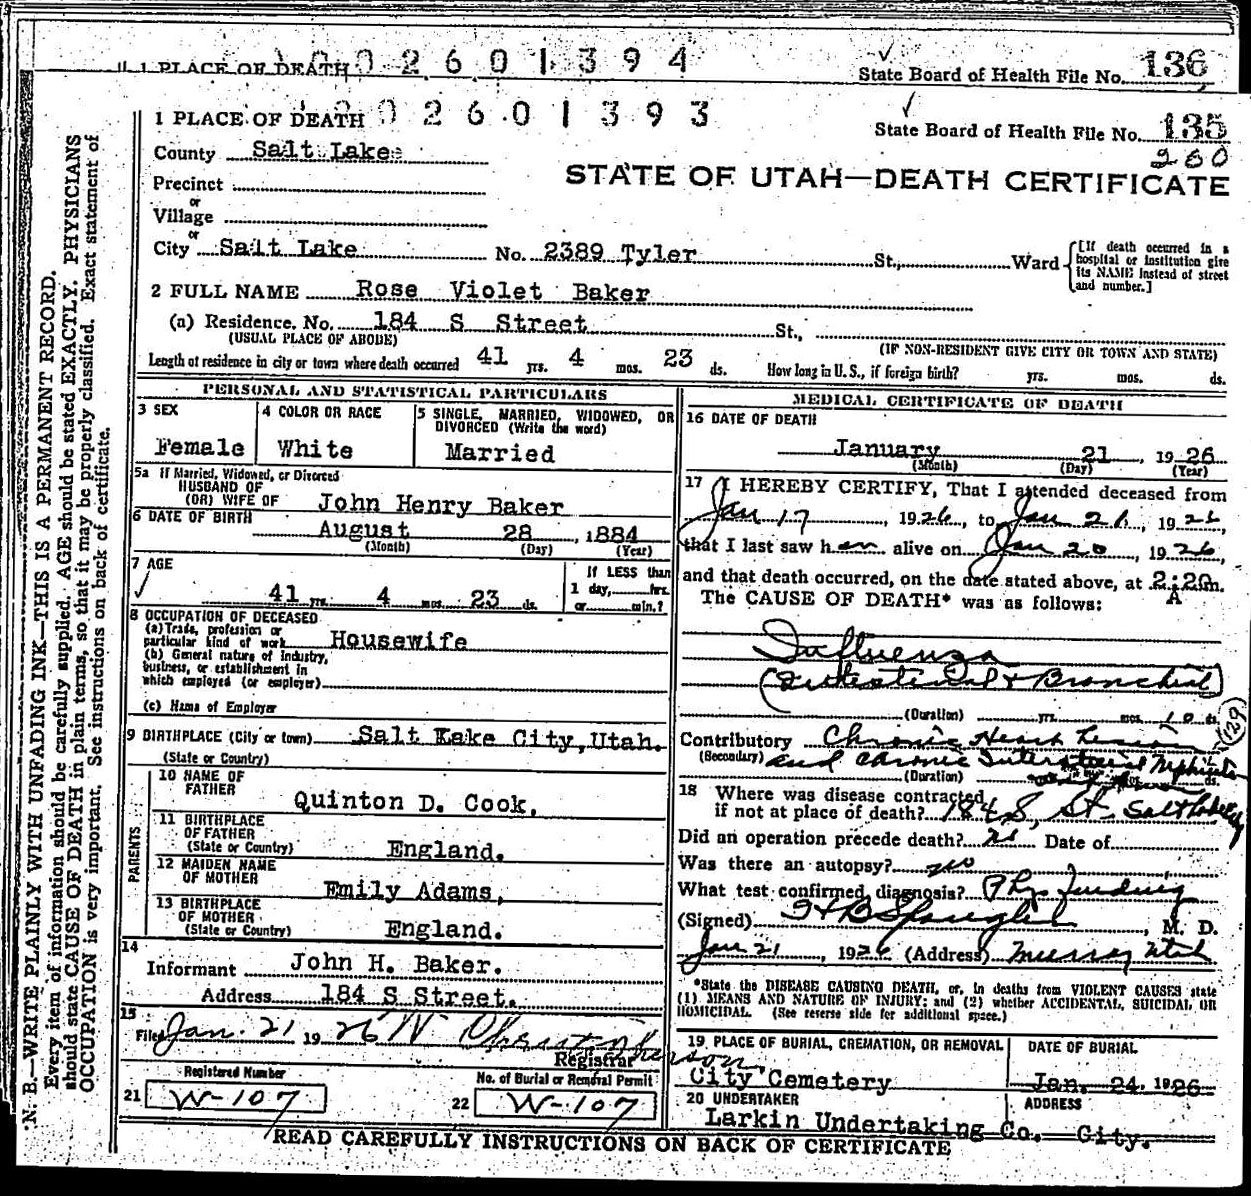 1 PLACE OF DEATH 0 0 2 6 0 1 3 9 4
State Board of Health File No. 136
1 PLACE OF DEATH 0 2 6 0 1 3 9 3
State Board of Health File No. 135
260
County Salt Lake
STATE OF UTAH—DEATH CERTIFICATE
Precinct
or
Village
or
City Salt Lake No. 2389 Tyler St., Ward
[If death occurred in a hospital or institution give its NAME instead of street and number.]
2 FULL NAME Rose Violet Baker
(a) Residence, No. 184 S Street St.,
(USUAL PLACE OF ABODE) (IF NON-RESIDENT GIVE CITY OR TOWN AND STATE)
Length of residence in city or town where death occurred 41 yrs. 4 mos. 23 ds. How long in U. S., if foreign birth? yrs. mos. ds.
PERSONAL AND STATISTICAL PARTICULARS
3 SEX
Female
4 COLOR OR RACE
White
5 SINGLE, MARRIED, WIDOWED, OR
DIVORCED (Write the word)
Married
5a If Married, Widowed, or Divorced
HUSBAND OF
(OR) WIFE OF John Henry Baker
6 DATE OF BIRTH
August 28, 1884
(Month) (Day) (Year)
7 AGE
41 yrs. 4 mos. 23 ds.
If LESS than
1 day, hrs.
or min.?
8 OCCUPATION OF DECEASED
(a) Trade, profession or
particular kind of work Housewife
(b) General nature of industry,
business, or establishment in
which employed (or employer)
(c) Name of Employer
9 BIRTHPLACE (City or town) Salt Lake City, Utah.
(State or Country)
PARENTS
10 NAME OF
FATHER
Quinton D. Cook,
11 BIRTHPLACE
OF FATHER
(State or Country) England.
12 MAIDEN NAME
OF MOTHER Emily Adams,
13 BIRTHPLACE
OF MOTHER
(State or Country) England.
14
Informant John H. Baker.
Address 184 S Street.
15
Filed Jan. 21 1926 W Christopherson
Registrar
Registered Number
21 W-107
No. of Burial or Removal Permit
22 W-107
MEDICAL CERTIFICATE OF DEATH
16 DATE OF DEATH
January 21, 1926
(Month) (Day) (Year)
17 I HEREBY CERTIFY, That I attended deceased from
Jan 17, 1926, to Jan 21, 1926,
that I last saw her alive on Jan 20, 1926,
and that death occurred, on the date stated above, at 2:20 m.
A
The CAUSE OF DEATH* was as follows:
Influenza
(Intestinal & Bronchial)
(Duration) yrs. mos. 10 ds.
129
Contributory Chronic Heart Lesion
(Secondary) and Chronic Interstitial Nephritis
(Duration)
18 Where was disease contracted
if not at place of death? 184 S, St. Salt Lake City
Did an operation precede death? no Date of
Was there an autopsy? no
What test confirmed diagnosis? Phys Finding
(Signed) , M. D.
Jan 21, 1926 (Address) Murray Utah
*State the DISEASE CAUSING DEATH, or, in deaths from VIOLENT CAUSES state
(1) MEANS AND NATURE OF INJURY; and (2) whether ACCIDENTAL, SUICIDAL OR
HOMICIDAL. (See reverse side for additional space.)
19 PLACE OF BURIAL, CREMATION, OR REMOVAL
City Cemetery
DATE OF BURIAL
Jan. 24, 1926
20 UNDERTAKER
Larkin Undertaking Co.
ADDRESS
City.
READ CAREFULLY INSTRUCTIONS ON BACK OF CERTIFICATE
N. B.—WRITE PLAINLY WITH UNFADING INK—THIS IS A PERMANENT RECORD.
Every item of information should be carefully supplied. AGE should be stated EXACTLY. PHYSICIANS
should state CAUSE OF DEATH in plain terms, so that it may be properly classified. Exact statement of
OCCUPATION is very important. See instructions on back of certificate.